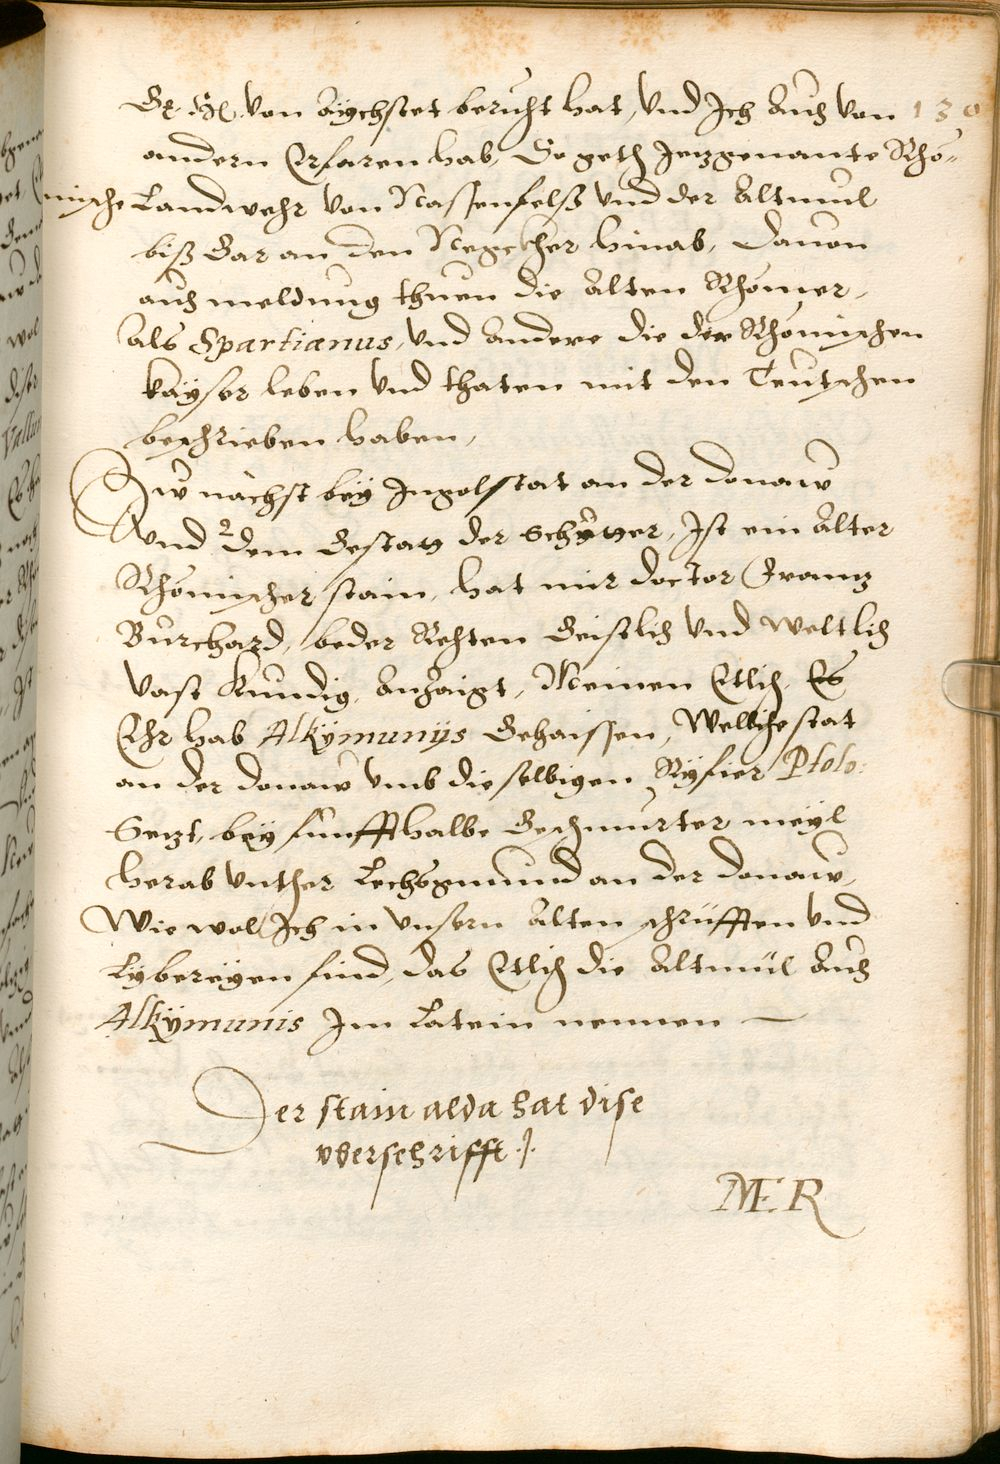 von Aychstet bericht hat, Vnd Ich Auch von 130
andern Erfaren hab, So geth Jezgenante Rhö-
mische Landwehr von Nassenfelß Vnd der Altmul
biß Gar an den Regether hinab, Dauon
auch meldung thuen die Alten Rhömer,
Als Spartianus, Vnd Andere die der Rhömischen
Kayser leben Vnd thaten mit den Teutschen
beschrieben haben,
nächst bey Ingolstat an der Donaw
Vnd 2 dem Gestatt der Schutter, Ist ein Alter
Rhömischer stain, hat mir doctor Frantz
Burchard, beder Rehten Geistlich Vnd Weltlich
Vast Kundig, Anzaigt, Meinen Etlich, Es
Ehr hab Alkymunijs Gehaissen, Welliche stat
an der Donaw Vmb die selbigen Ryfier Ptolo:
Setzt, bey fünffthalbe Geschnurter meyl
herab Vnther Lechsgmund an der Donaw,
Wie wol Ich in Vnsern Alten schrüfften Vnd
Lybereyen find, das Etlich die Altmül Auch
Alkymunis Im Latein nennen —
Der stain alda hat dise
vberschrifft ./.
MER